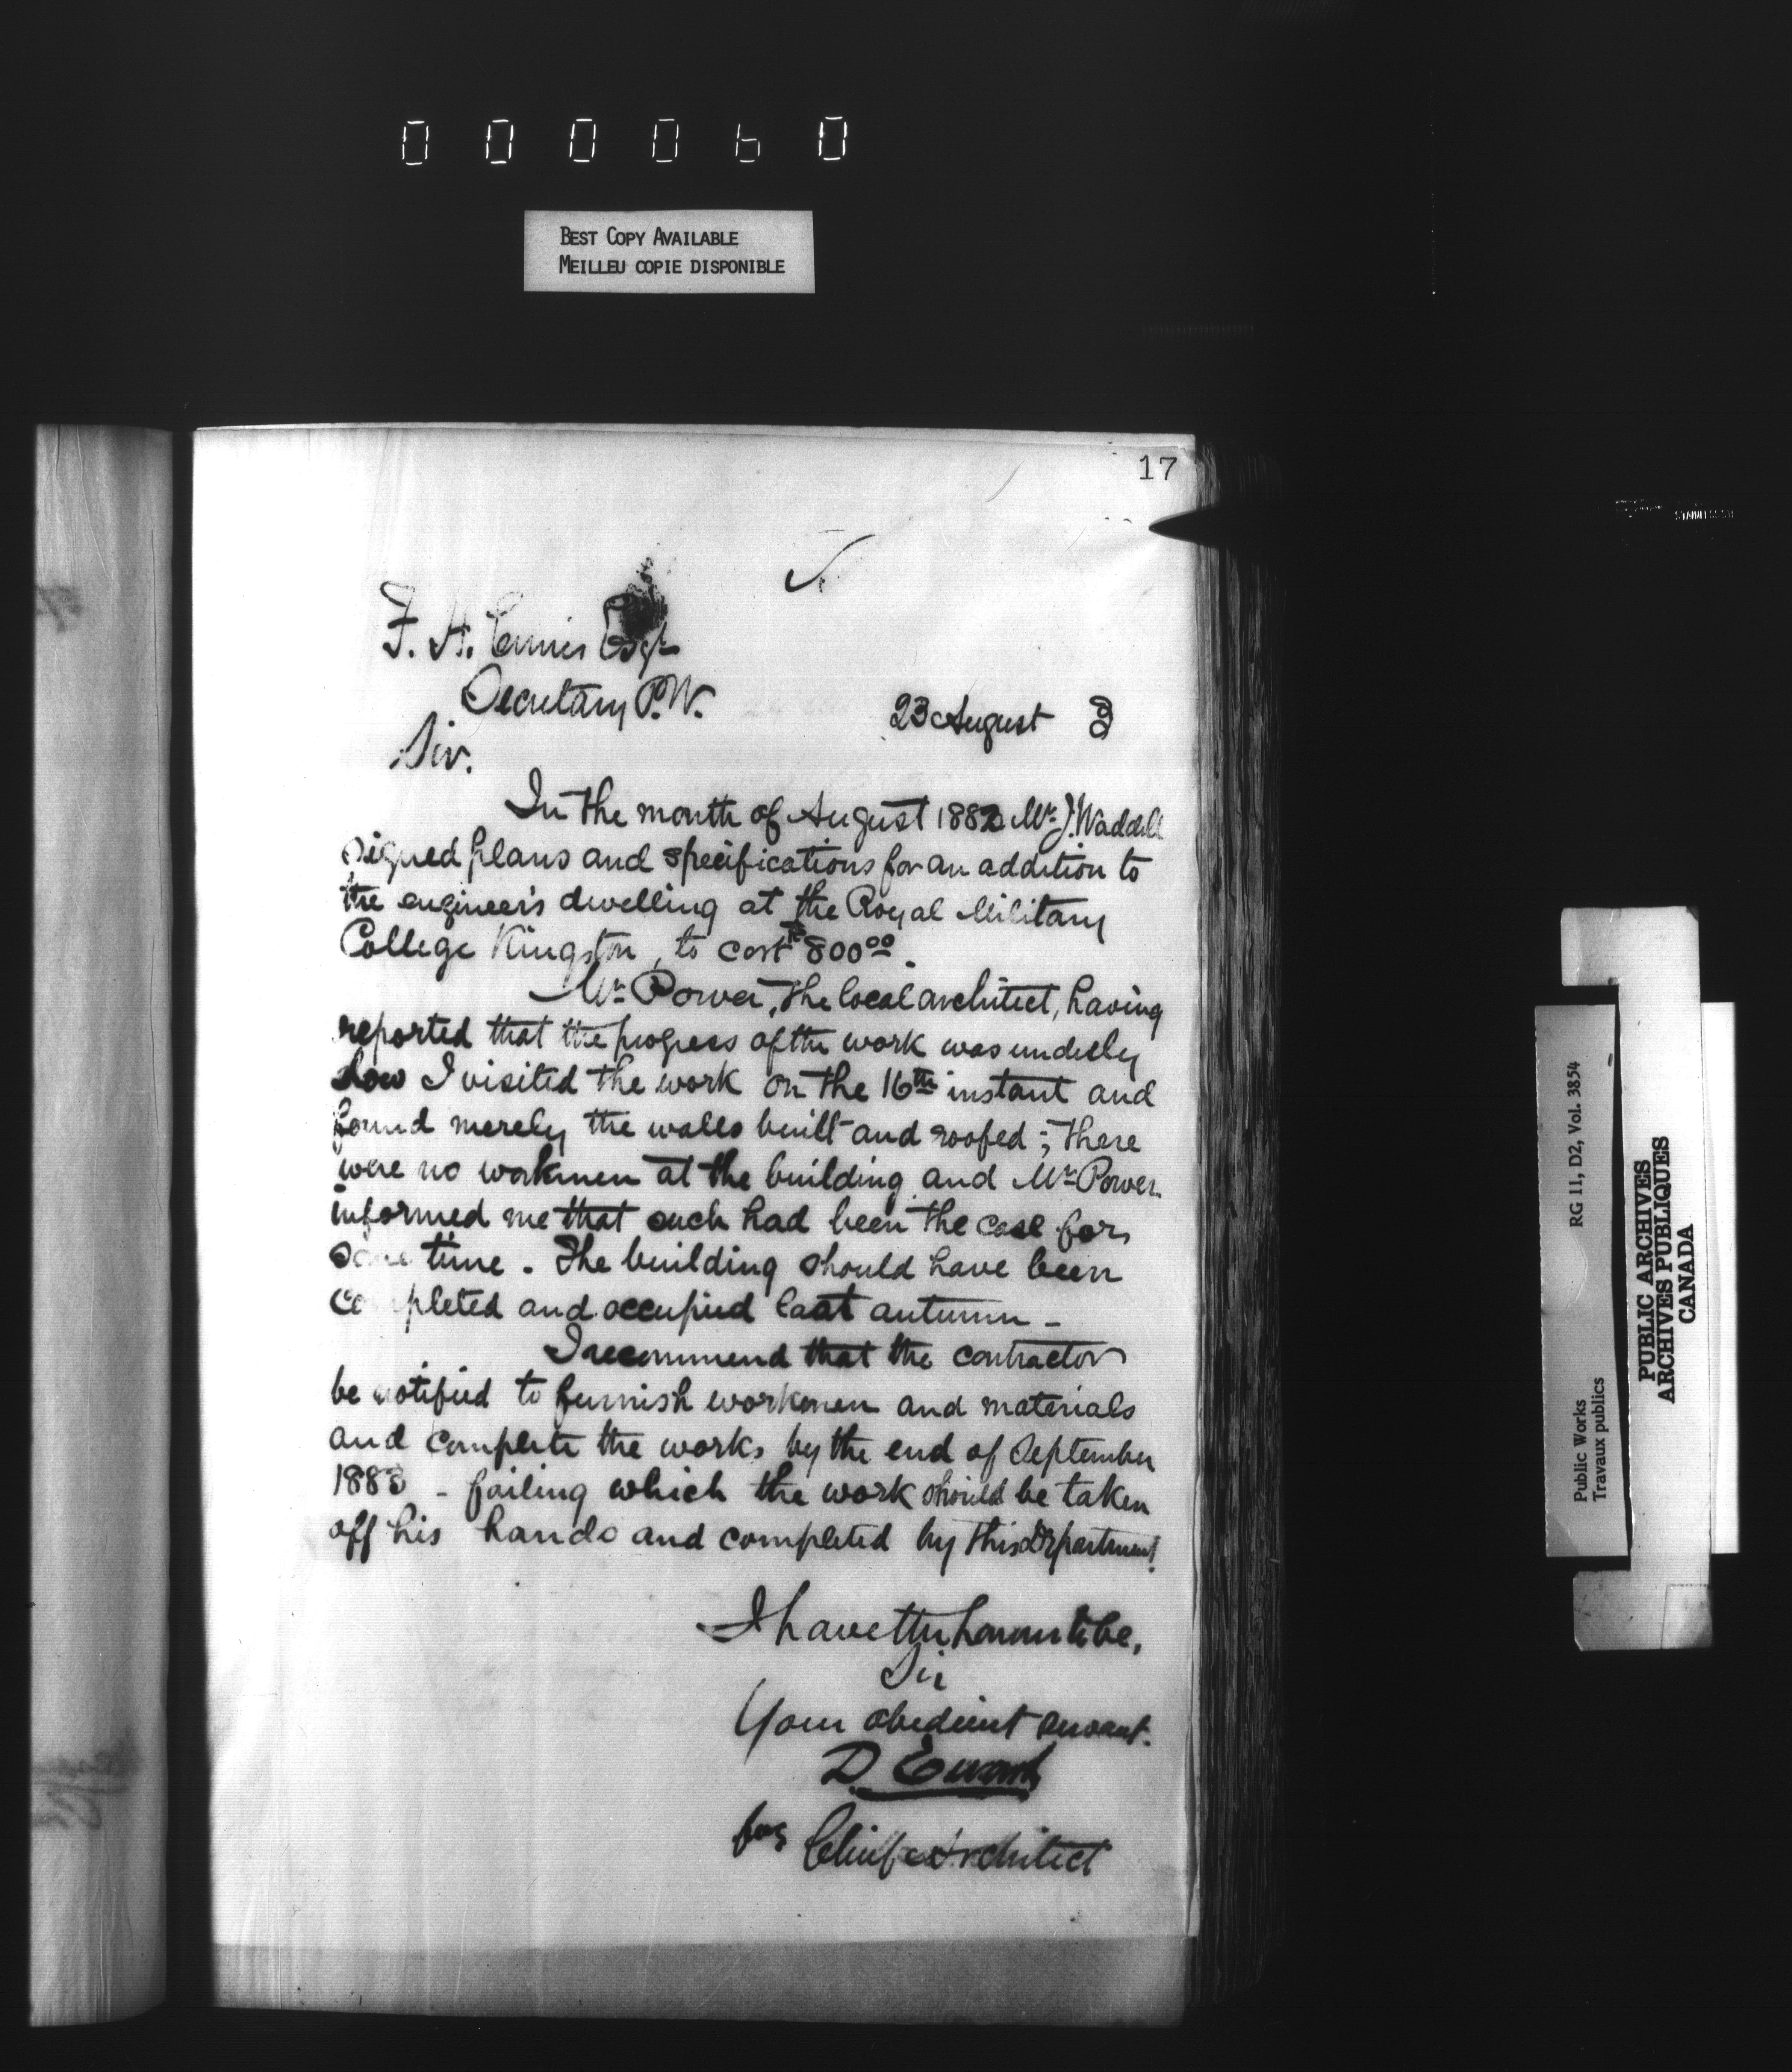 000060
BEST COPY AVAILABLE
MEILLEU COPIE DISPONIBLE
17
F. H. Ennis Esqr
Secretary P.W.
23 August 3
Sir.
In the month of August 1882 Mr J. Waddell
signed plans and specifications for an addition to
the engineer's dwelling at the Royal Military
College Kingston, to cost $800 00.
Mr Power, the local architect, having
reported that the progress of the work was unduly
slow I visited the work on the 16th instant and
found merely the walls built and roofed; there
were no workmen at the building and Mr Power
informed me that such had been the case for
some time. The building should have been
completed and occupied last autumn -
I recommend that the contractor
be notified to furnish workmen and materials
and complete the works by the end of September
1883 - failing which the work should be taken
off his hands and completed by this Department.
I have the honour to be,
Sir
Your obedient servant.
D. Ewart
for Chief Architect
Public Works
Travaux publics
RG 11, D2, Vol. 3854
PUBLIC ARCHIVES
ARCHIVES PUBLIQUES
CANADA